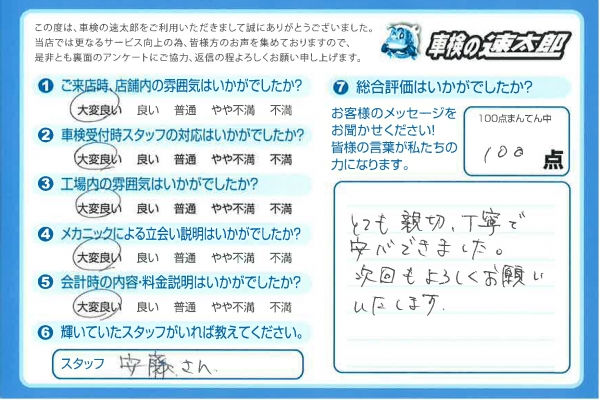 この度は、車検の速太郎をご利用いただきまして誠にありがとうございました。
当店では更なるサービス向上の為、皆様方のお声を集めておりますので、
是非とも裏面のアンケートにご協力、返信の程よろしくお願い申し上げます。
車検の速太郎
1 ご来店時、店舗内の雰囲気はいかがでしたか?
大変良い 良い 普通 やや不満 不満
2 車検受付時スタッフの対応はいかがでしたか?
大変良い 良い 普通 やや不満 不満
3 工場内の雰囲気はいかがでしたか?
大変良い 良い 普通 やや不満 不満
4 メカニックによる立会い説明はいかがでしたか?
大変良い 良い 普通 やや不満 不満
5 会計時の内容・料金説明はいかがでしたか?
大変良い 良い 普通 やや不満 不満
6 輝いていたスタッフがいれば教えてください。
スタッフ 安藤さん
7 総合評価はいかがでしたか?
お客様のメッセージを
お聞かせください!
皆様の言葉が私たちの
力になります。
100点まんてん中
100 点
とても親切、丁寧で
安心できました。
次回もよろしくお願い
いたします.